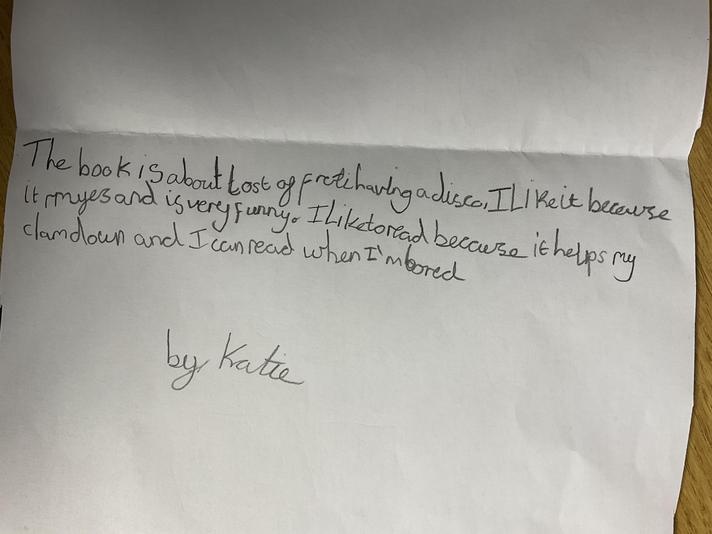 The book is about Lost of frote having a disco, I Like it because
it rmyes and is very funny. I Like to read because it helps my
clam down and I can read when I'm bored
by Katie